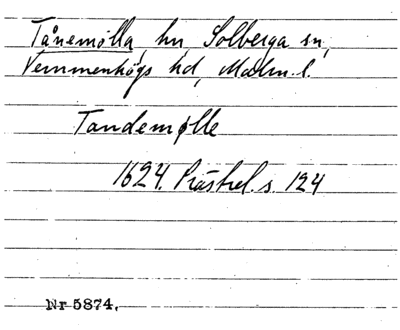 Tånemölla, hn, Solberga sn,
Vemmenhögs hd, Malm. l.
Tandemølle
1624. Prästrel. s. 124
Nr 5874.